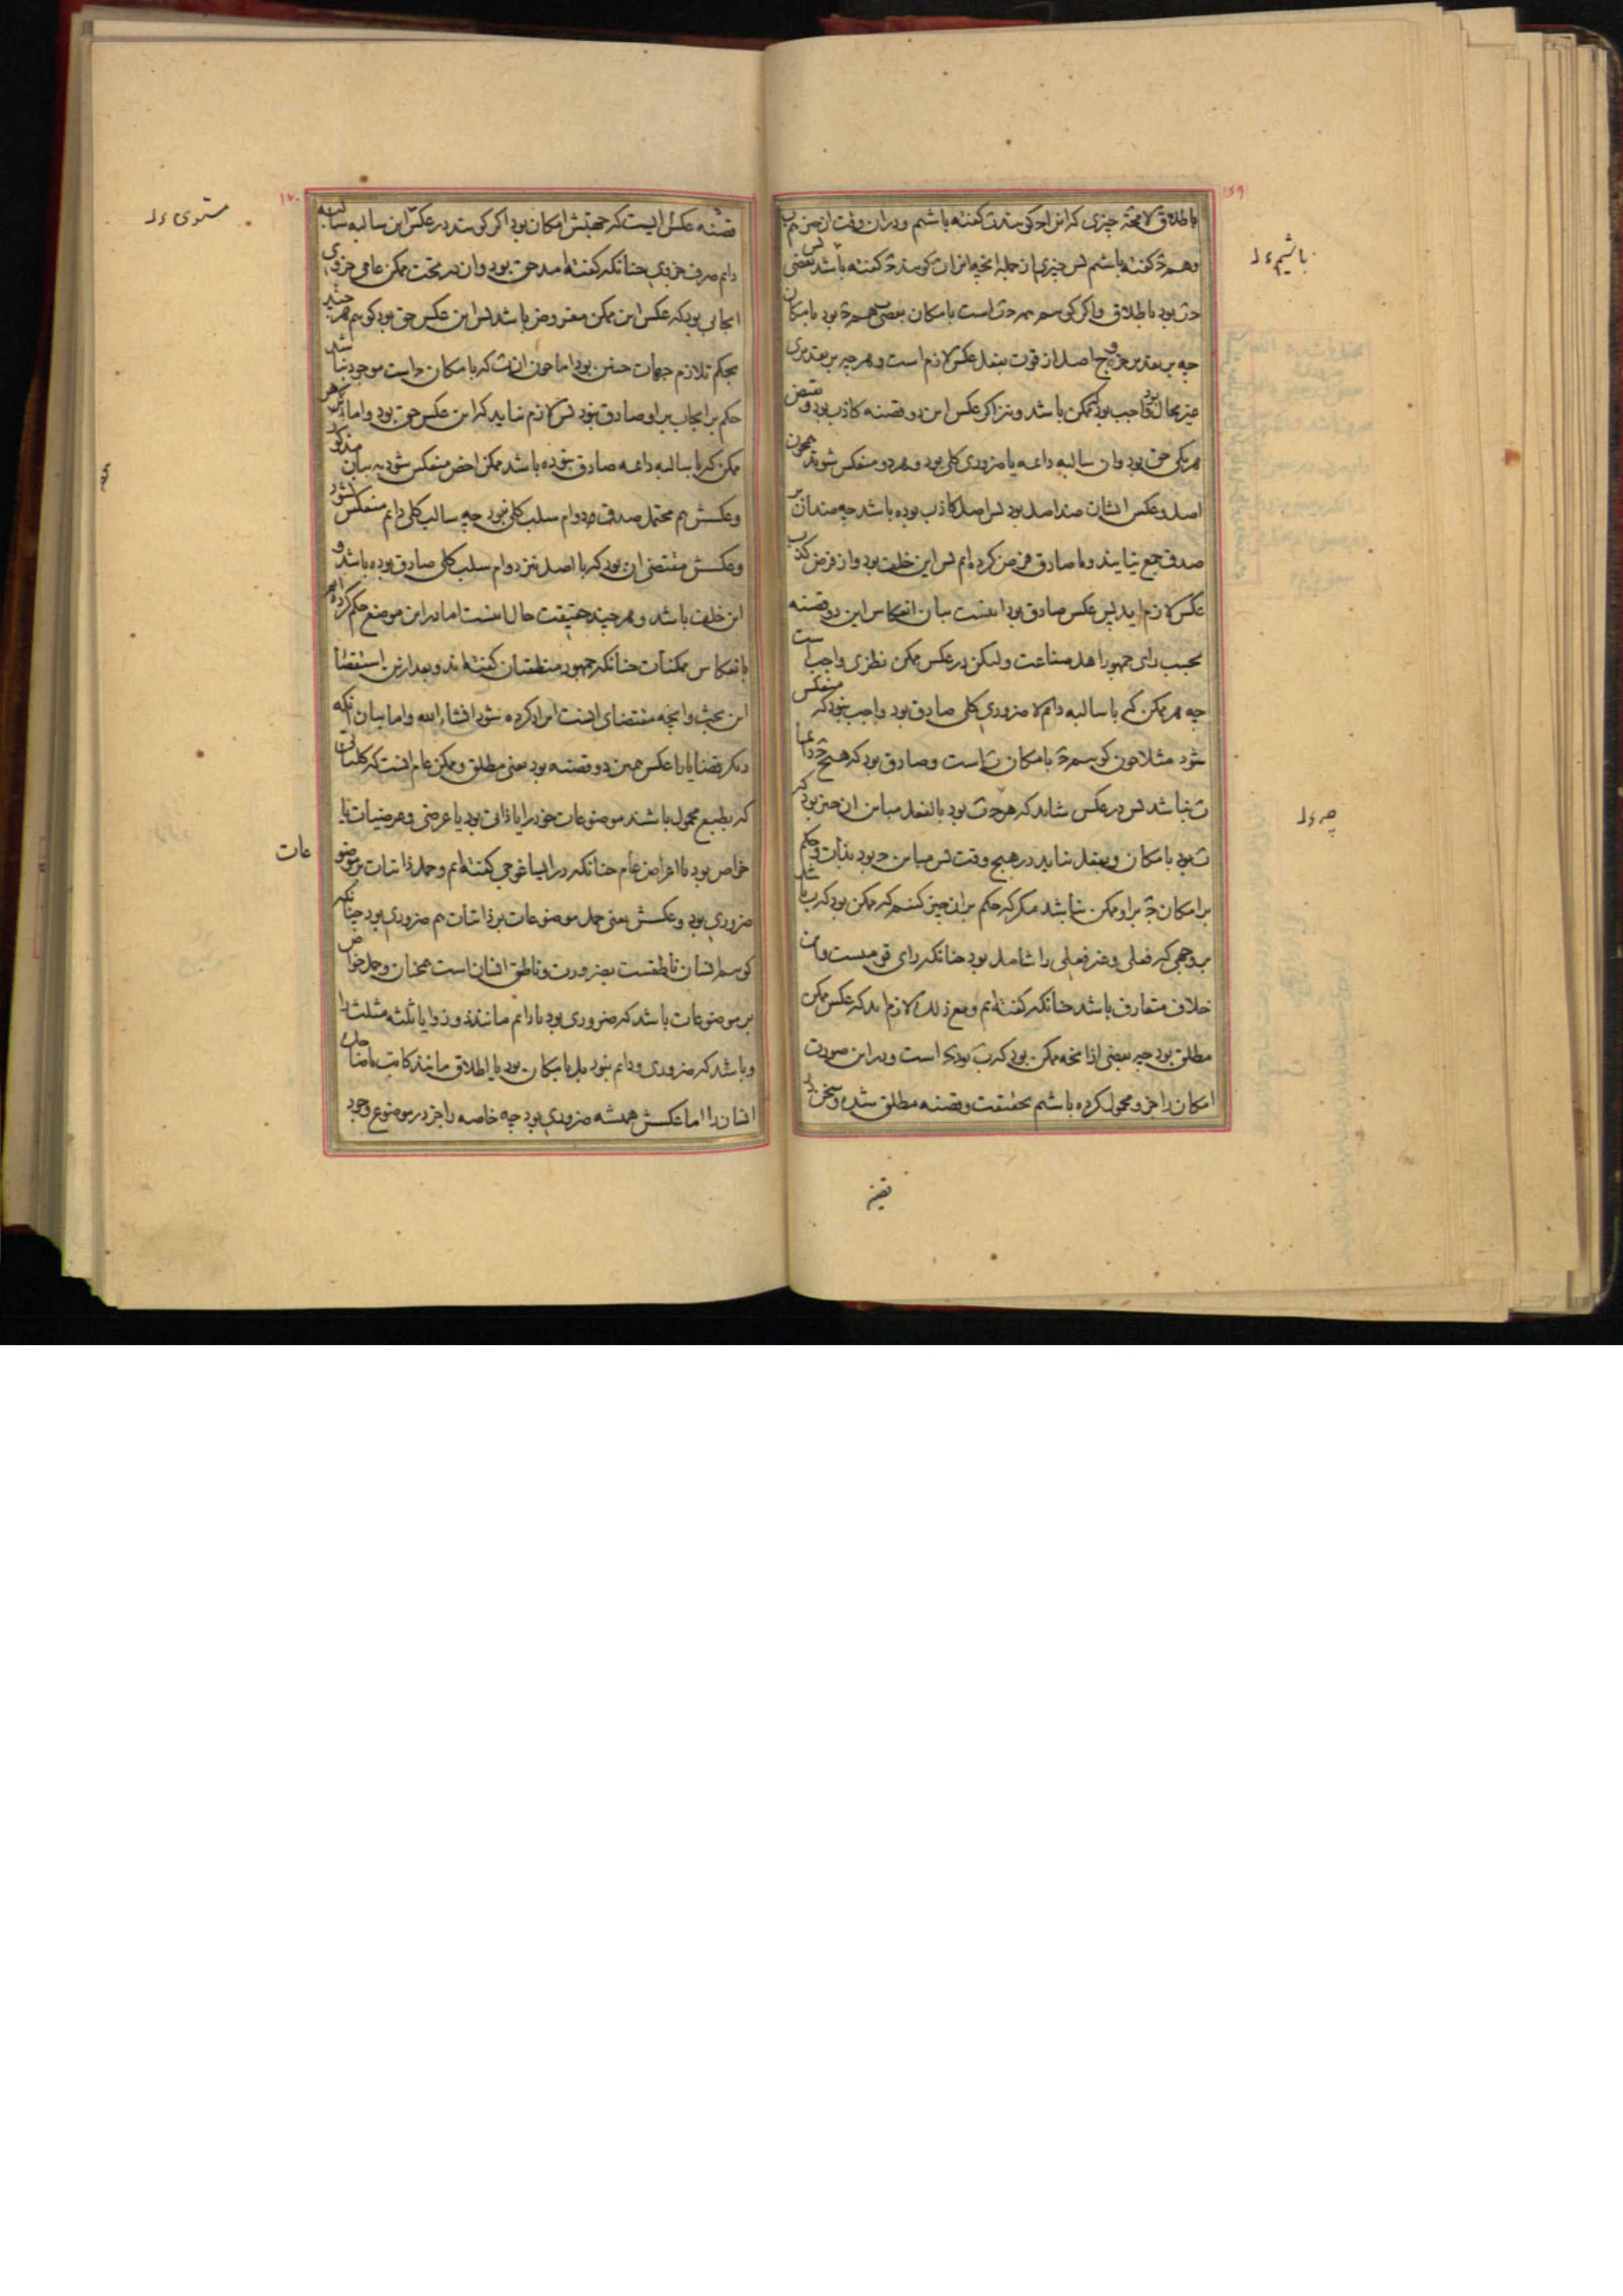 ۱۵۹
باطلاق لامحة چیزی که انرا حکوسد ت کفته باشیم ودران وقت ان چیز هم ب
وهم ج کفته باشیم پس چیزی از جملهٔ انچه انرا ت کوسد ج کفته باشد پس بعضی
باشیم ء ل
ت بود باطلاق واکر کوسم همه ج ت است بامکان بعضی هم ج بود بامکان
چه بر تقدیر خروج اصل از قوت بفعل عکس لازم است وهر چه بر تقدیری
غیر محال واجب بود ممکن باشد ونیز اکر عکس این دو قضیه کاذب بود ونقیض
هر یکی حق بود وان سالبه دائمه یا ضروری کلی بود وهر دو منعکس شوند همچون
اصل وعکس ایشان ضد اصل بود پس اصل کاذب بوده باشد چه ضدان بر
صدق جمع نیایند وما صادق فرض کرده ایم پس این خلف بود واز فرض کذب
عکس لازم اید پس عکس صادق بود اینست بیان انعکاس این دو قضیه
بحسب رای جمهور اهل صناعت ولیکن در عکس ممکن نظری واجب است
چه هر ممکن که با سالبه دائم لا ضروری کلی صادق بود واجب نبود که منعکس
شود مثلا چون کوسم ج بامکان ت است وصادق بود که هیچ ج دائما
ت نباشد پس در عکس شاید که هرچ ت بود بالفعل مباین ان چیز بود که
چه ء ل
ت بود بامکان وبفعل نیاید در هیچ وقت پس مباین ج بود بذات وحکم
بر امکان ج بر او ممکن نباشد مکر که حکم بران چیز کنیم که ممکن بود که ب باشد
بر وجهی که فعلی وغیر فعلی را شامل بود چنانکه رای قومیست واین
خلاف متعارف باشد چنانکه کفته ایم ومع ذلک لازم اید که عکس ممکن
مطلق بود چه بعضی از انچه ممکن بود که ب بود ج است ودر این صورت
امکان را جزو محمول کرده باشیم بحقیقت وقضیه مطلق شده وسخن در
قضیه
۱۶۰
قضیه عکس ایست که جهتش امکان بود اکر کوسد در عکس این سالبه سالبه
مستوی ء ل
دایم صرف جزوی چنانکه کفته امد حق بود وان در تحت ممکن عامی جزوی
ایجابی بود که عکس این ممکن مفروض باشد پس این عکس حق بود کوییم هر چند
بحکم تلازم جهات چنین بود اما چون ان ت که بامکان ج است موجود نباشد
حکم بر ایجاب بر او صادق نبود پس لازم نیاید که این عکس حق بود واما هر
ممکن که با سالبه دائمه صادق نبوده باشد ممکن اخص منعکس شود به بیان مذکور
وعکسش هم محتمل صدق دوام سلب کلی نبود چه سالب کلی دایم منعکس شود
وعکسش مقتضی ان بود که با اصل نیز دوام سلب کلی صادق بوده باشد و
این خلف باشد وهر چند حقیقت حال اینست اما در این موضع حکم کرده ایم
بانعکاس ممکنات چنانکه جمهور منطقیان کفته اند وبعد ازین استقضا
این بحث وانچه مقتضای اینست ایراد کرده شود انشاء الله واما بیان انکه
دیکر قضایا را عکس همین دو قضیه بود یعنی مطلق وممکن عام انست که کلیاتی
که بطبع محمول باشند موضوعات خود را یا ذاتی بود یا عرضی وعرضیات یا
خواص بود یا اعراض عام چنانکه در ایساغوجی کفته ایم وحمل ذاتیات بر موضو
عات
ضروری بود وعکسش یعنی حمل موضوعات بر ذاتیات هم ضروری بود چنانکه
کوسم انسان ناطقست بضرورت وناطق انسان است همچنان وحمل خواص
بر موضوعات باشد که ضروری بود یا دایم مانند ذو زوایا ثلثه مثلث را
وباشد که ضروری ودایم نبود بل بامکان بود یا اطلاق مانند کاتب یا ضاحک
انسان را اما عکسش همیشه ضروری بود چه خاصه را جز در موضوع وجود